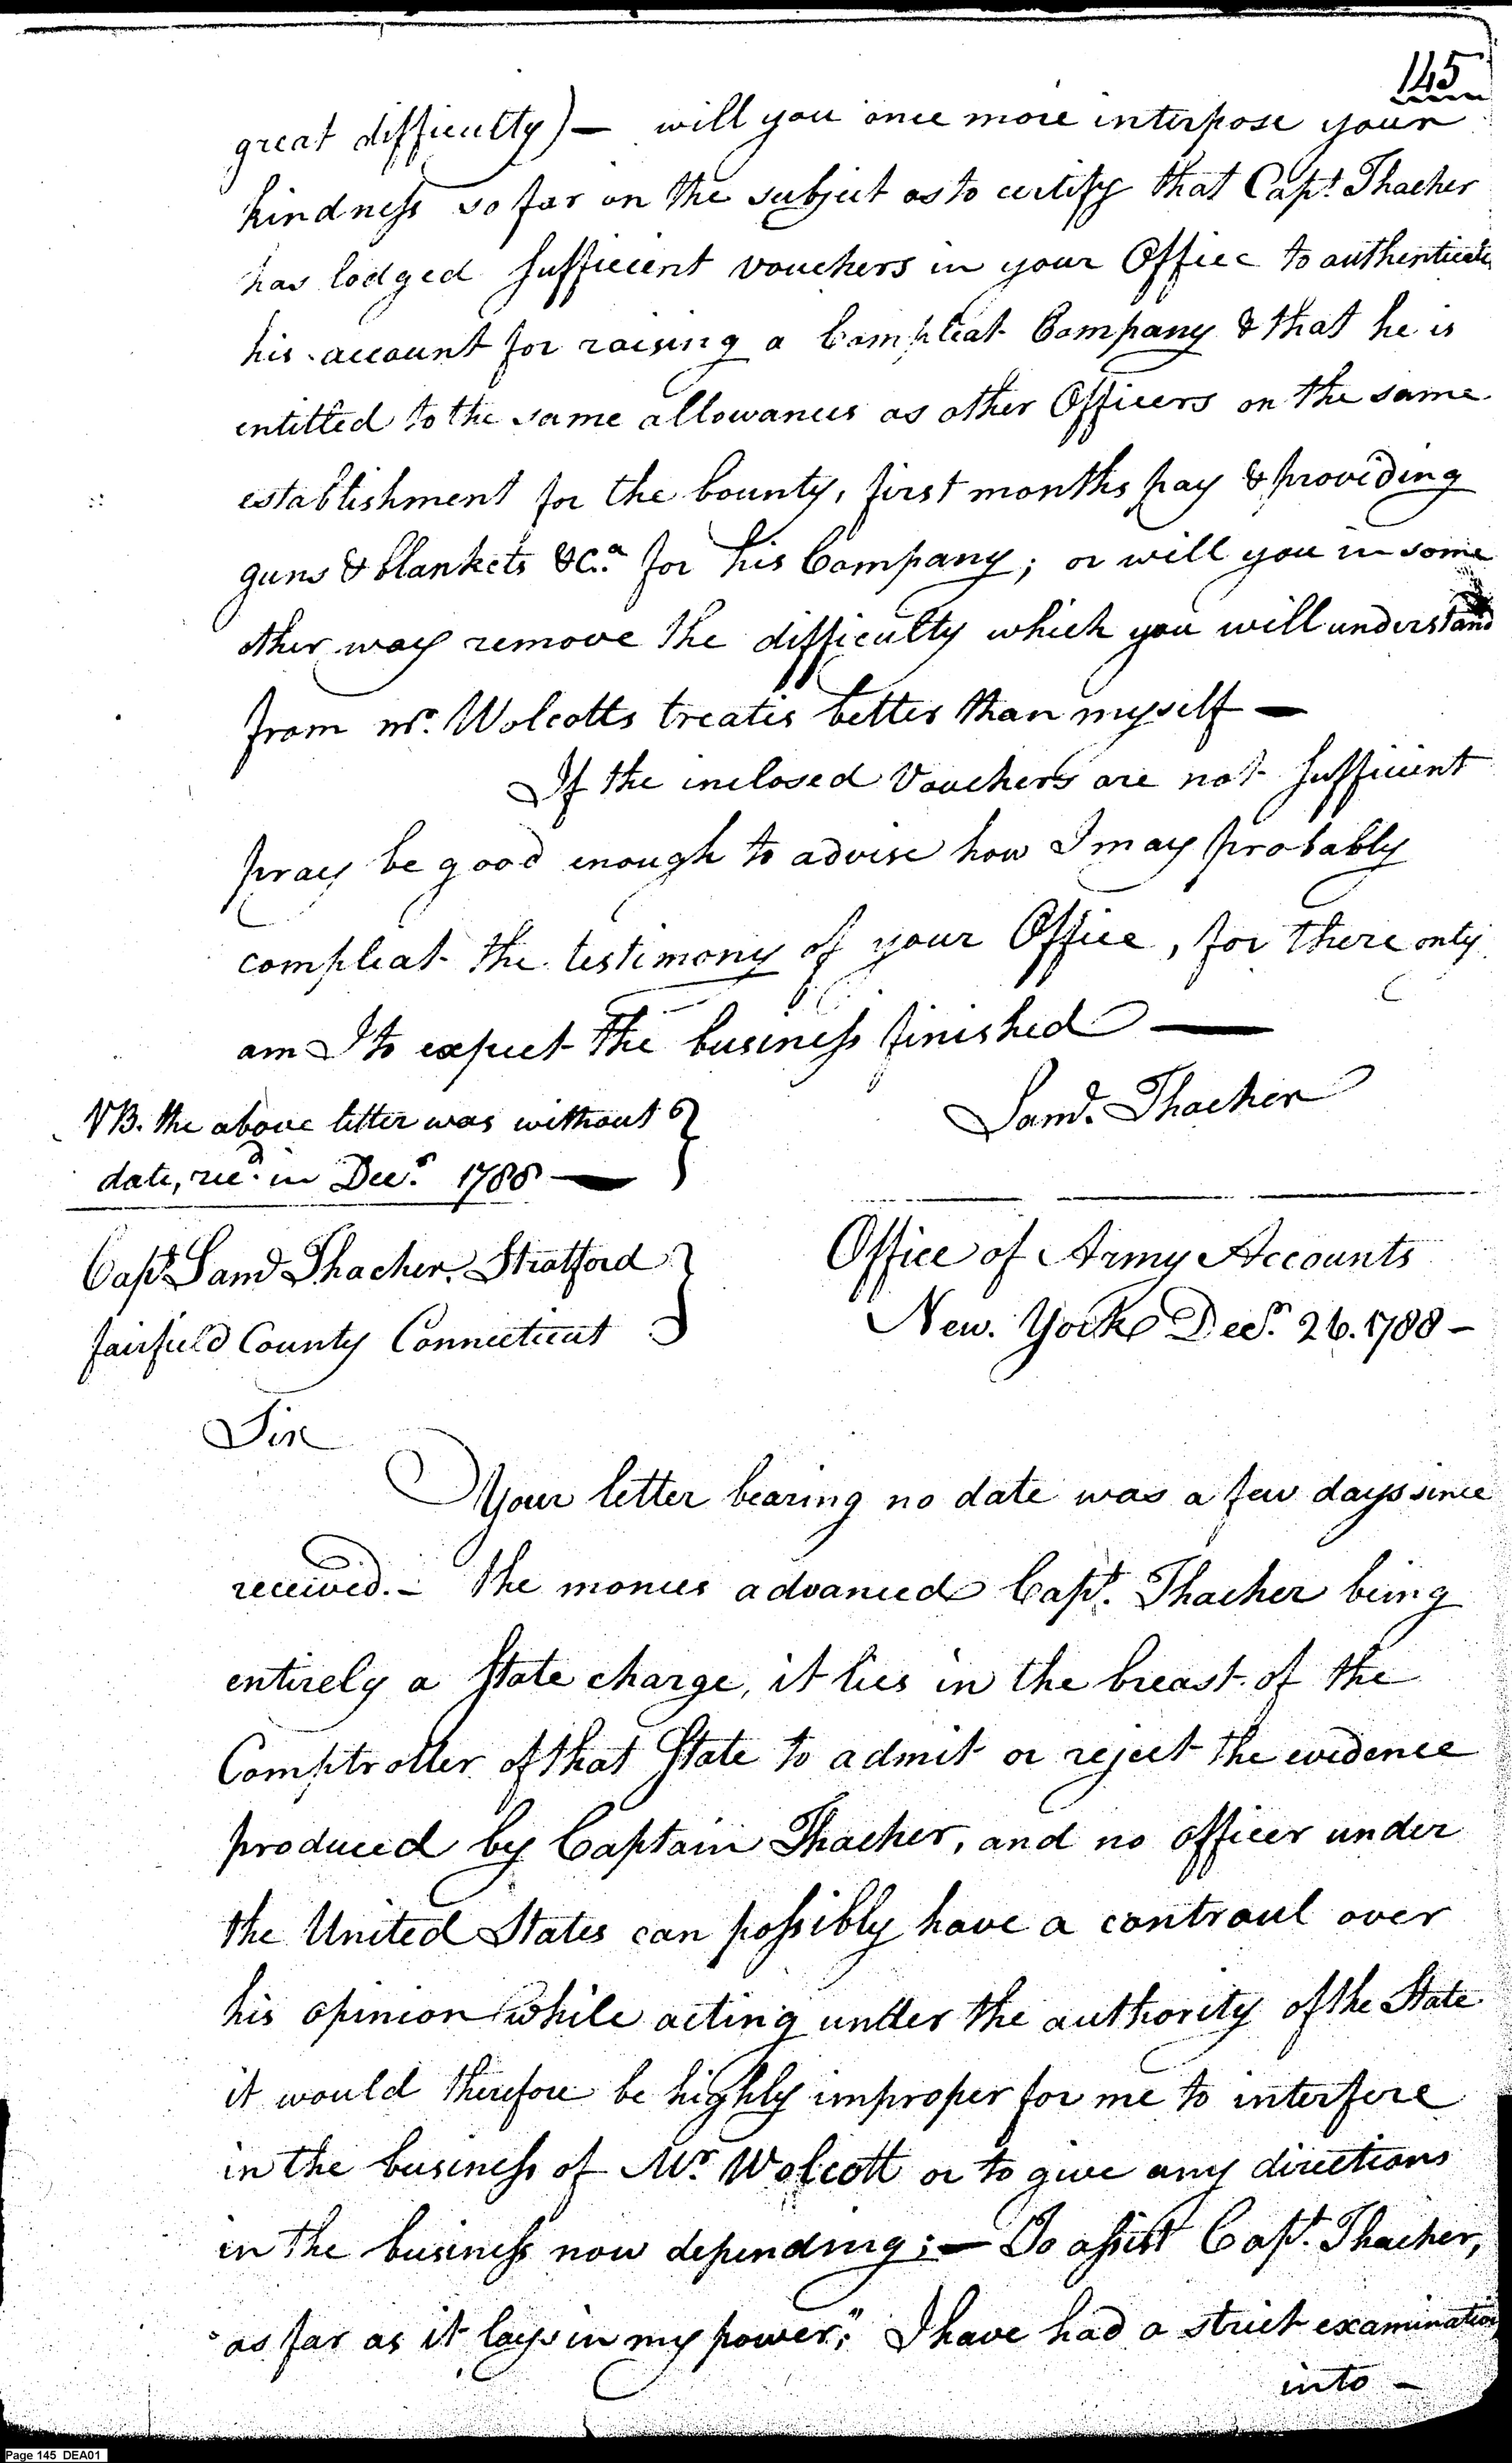 145
great difficulty) — will you once more interpose your
kindness so far on the subject as to certify that Capt. Thacher
has lodged sufficient vouchers in your Office to authenticate
his account for raising a Compleat Company & that he is
entitled to the same allowances as other Officers on the same
establishment for the bounty, first months pay & providing
guns & blankets &Ca. for his Company; or will you in some
other way remove the difficulty which you will understand
from mr. Wolcotts treatis better than myself —
If the inclosed Vouchers are not sufficient
pray be good enough to advise how I may probably
compleat the testimony of your Office, for there only
am I to expect the business finished —
Saml. Thacher
NB. the above letter was without
date, recd. in Decr. 1788 —
Capt. Saml Thacher. Stratford
fairfield County Connecticut
Office of Army Accounts
New. York Decr. 26. 1788 —
Sir
Your letter bearing no date was a few days since
received. — the monies advanced Capt. Thacher being
entirely a State charge, it lies in the breast of the
Comptroller of that State to admit or reject the evidence
produced by Captain Thacher, and no officer under
the United States can possibly have a controul over
his opinion while acting under the authority of the State
it would therefore be highly improper for me to interfere
in the business of Mr. Wolcott or to give any directions
in the business now depending; — To assist Capt. Thacher,
"as far as it lays in my power;" I have had a strict examination
into —
Page 145 DEA01